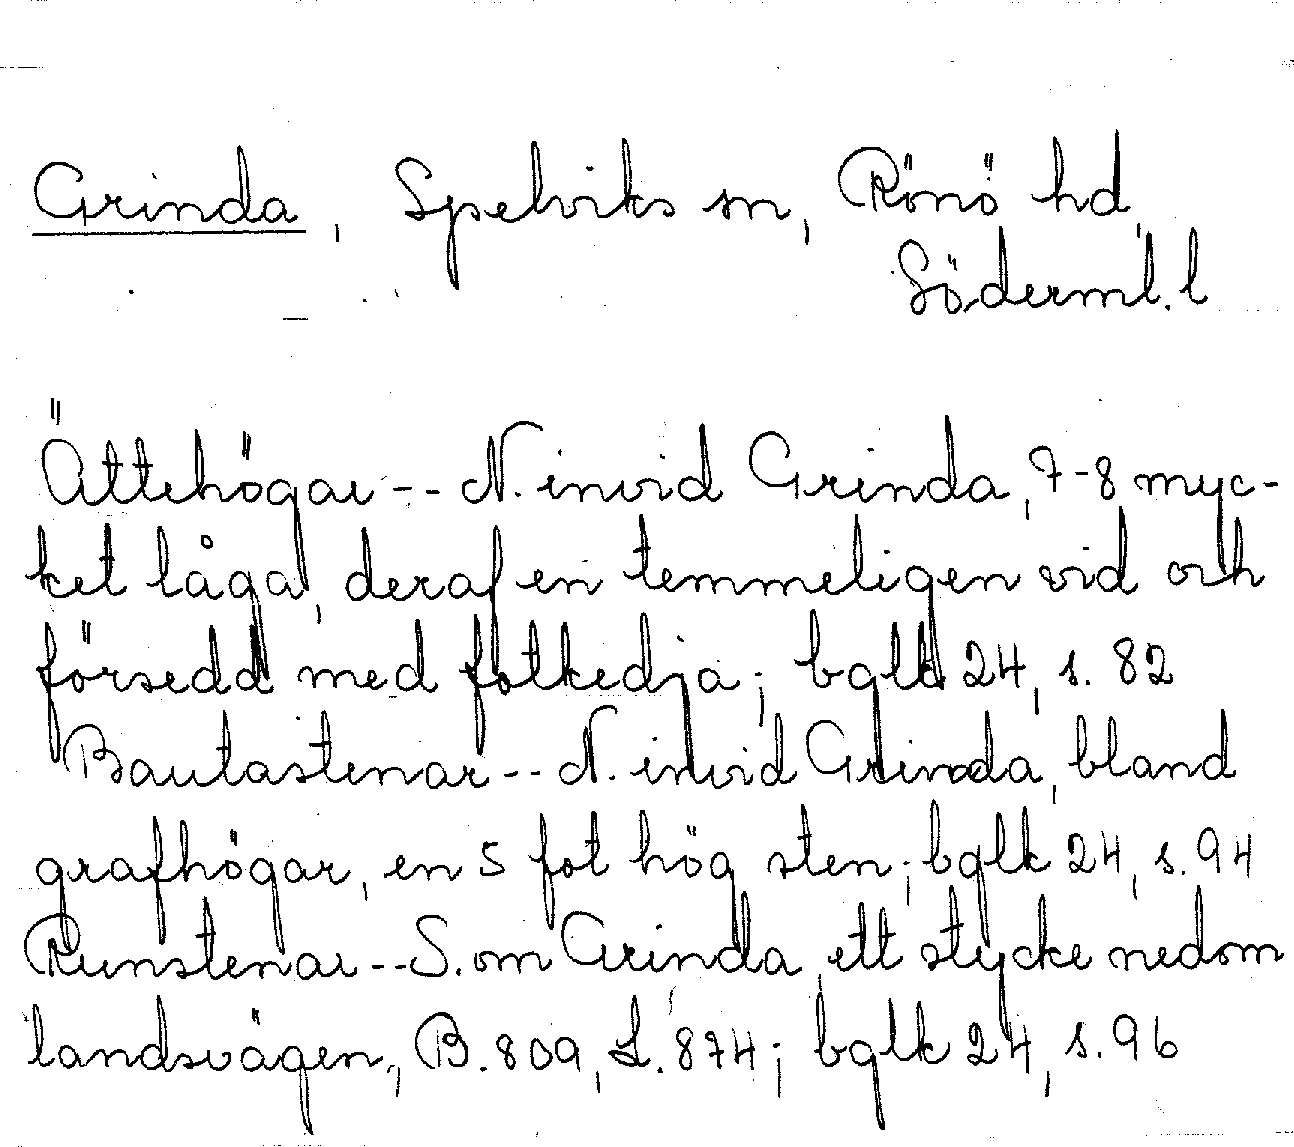 Grinda, Spelviks sn, Rönö hd,
Söderml. l
Ättehögar -- N. invid Grinda, 7-8 myc-
ket låga, deraf en temmeligen vid och
försedd med fotkedja; bglk 24, s. 82
Bautastenar -- N. invid Grinda, bland
grafhögar, en 5 fot hög sten; bglk 24, s. 94
Runstenar -- S. om Grinda, ett stycke nedom
landsvägen, B. 809, L. 874; bglk 24, s. 96